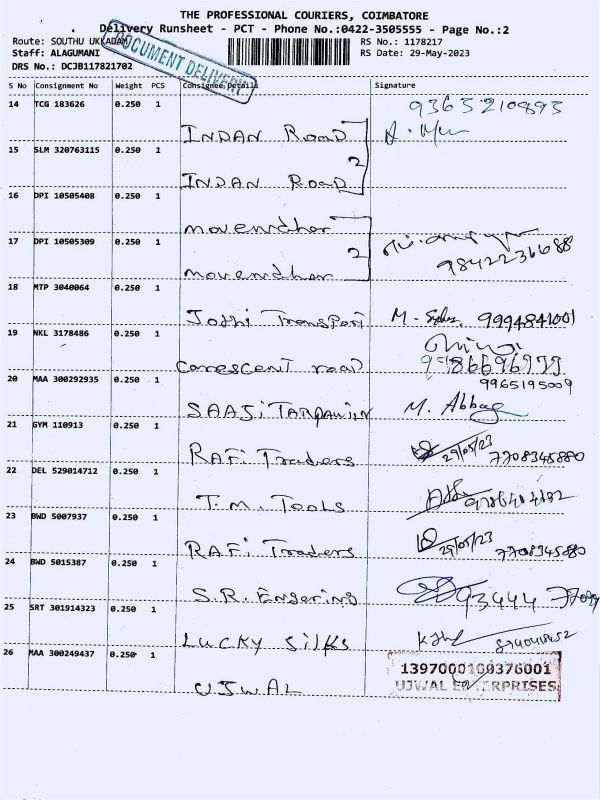 THE PROFESSIONAL COURIERS, COIMBATORE
Delivery Runsheet - PCT - Phone No.:0422-3505555 - Page No.:2
Route: SOUTHU UKKADAM
RS No.: 1178217
Staff: ALAGUMANI
RS Date: 29-May-2023
DRS No.: DCJB117821702
DOCUMENT DELIVERY
S No Consignment No Weight PCS Consignee Details Signature
14 TCG 183626 0.250 1
9365210893
INDAN Road
15 SLM 320763115 0.250 1
2
INDAN Road
16 DPI 10505408 0.250 1
movendher
17 DPI 10505309 0.250 1
2
9842236688
movendher
18 MTP 3040064 0.250 1
Jothi Transport M. 9994841001
19 NKL 3178486 0.250 1
Carescent road
20 MAA 300292935 0.250 1
9965195009
SAAJi TARPAULIN M. Abbas
21 GYM 110913 0.250 1
RAFi Traders 29/05/23 7708345880
22 DEL 529014712 0.250 1
T.M. Tools
23 BWD 5007937 0.250 1
RAFi Traders 29/05/23 7708345880
24 BWD 5015387 0.250 1
S.R. Engering
25 SRT 301914323 0.250 1
LUCKY Silks
26 MAA 300249437 0.250 1
1397000100376001
UJWAL ENTERPRISES
UJWAL